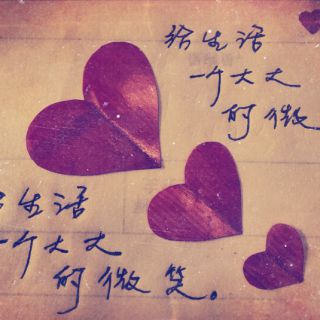 给生活
一个大大
的微
给生活
一个大大
的微笑。